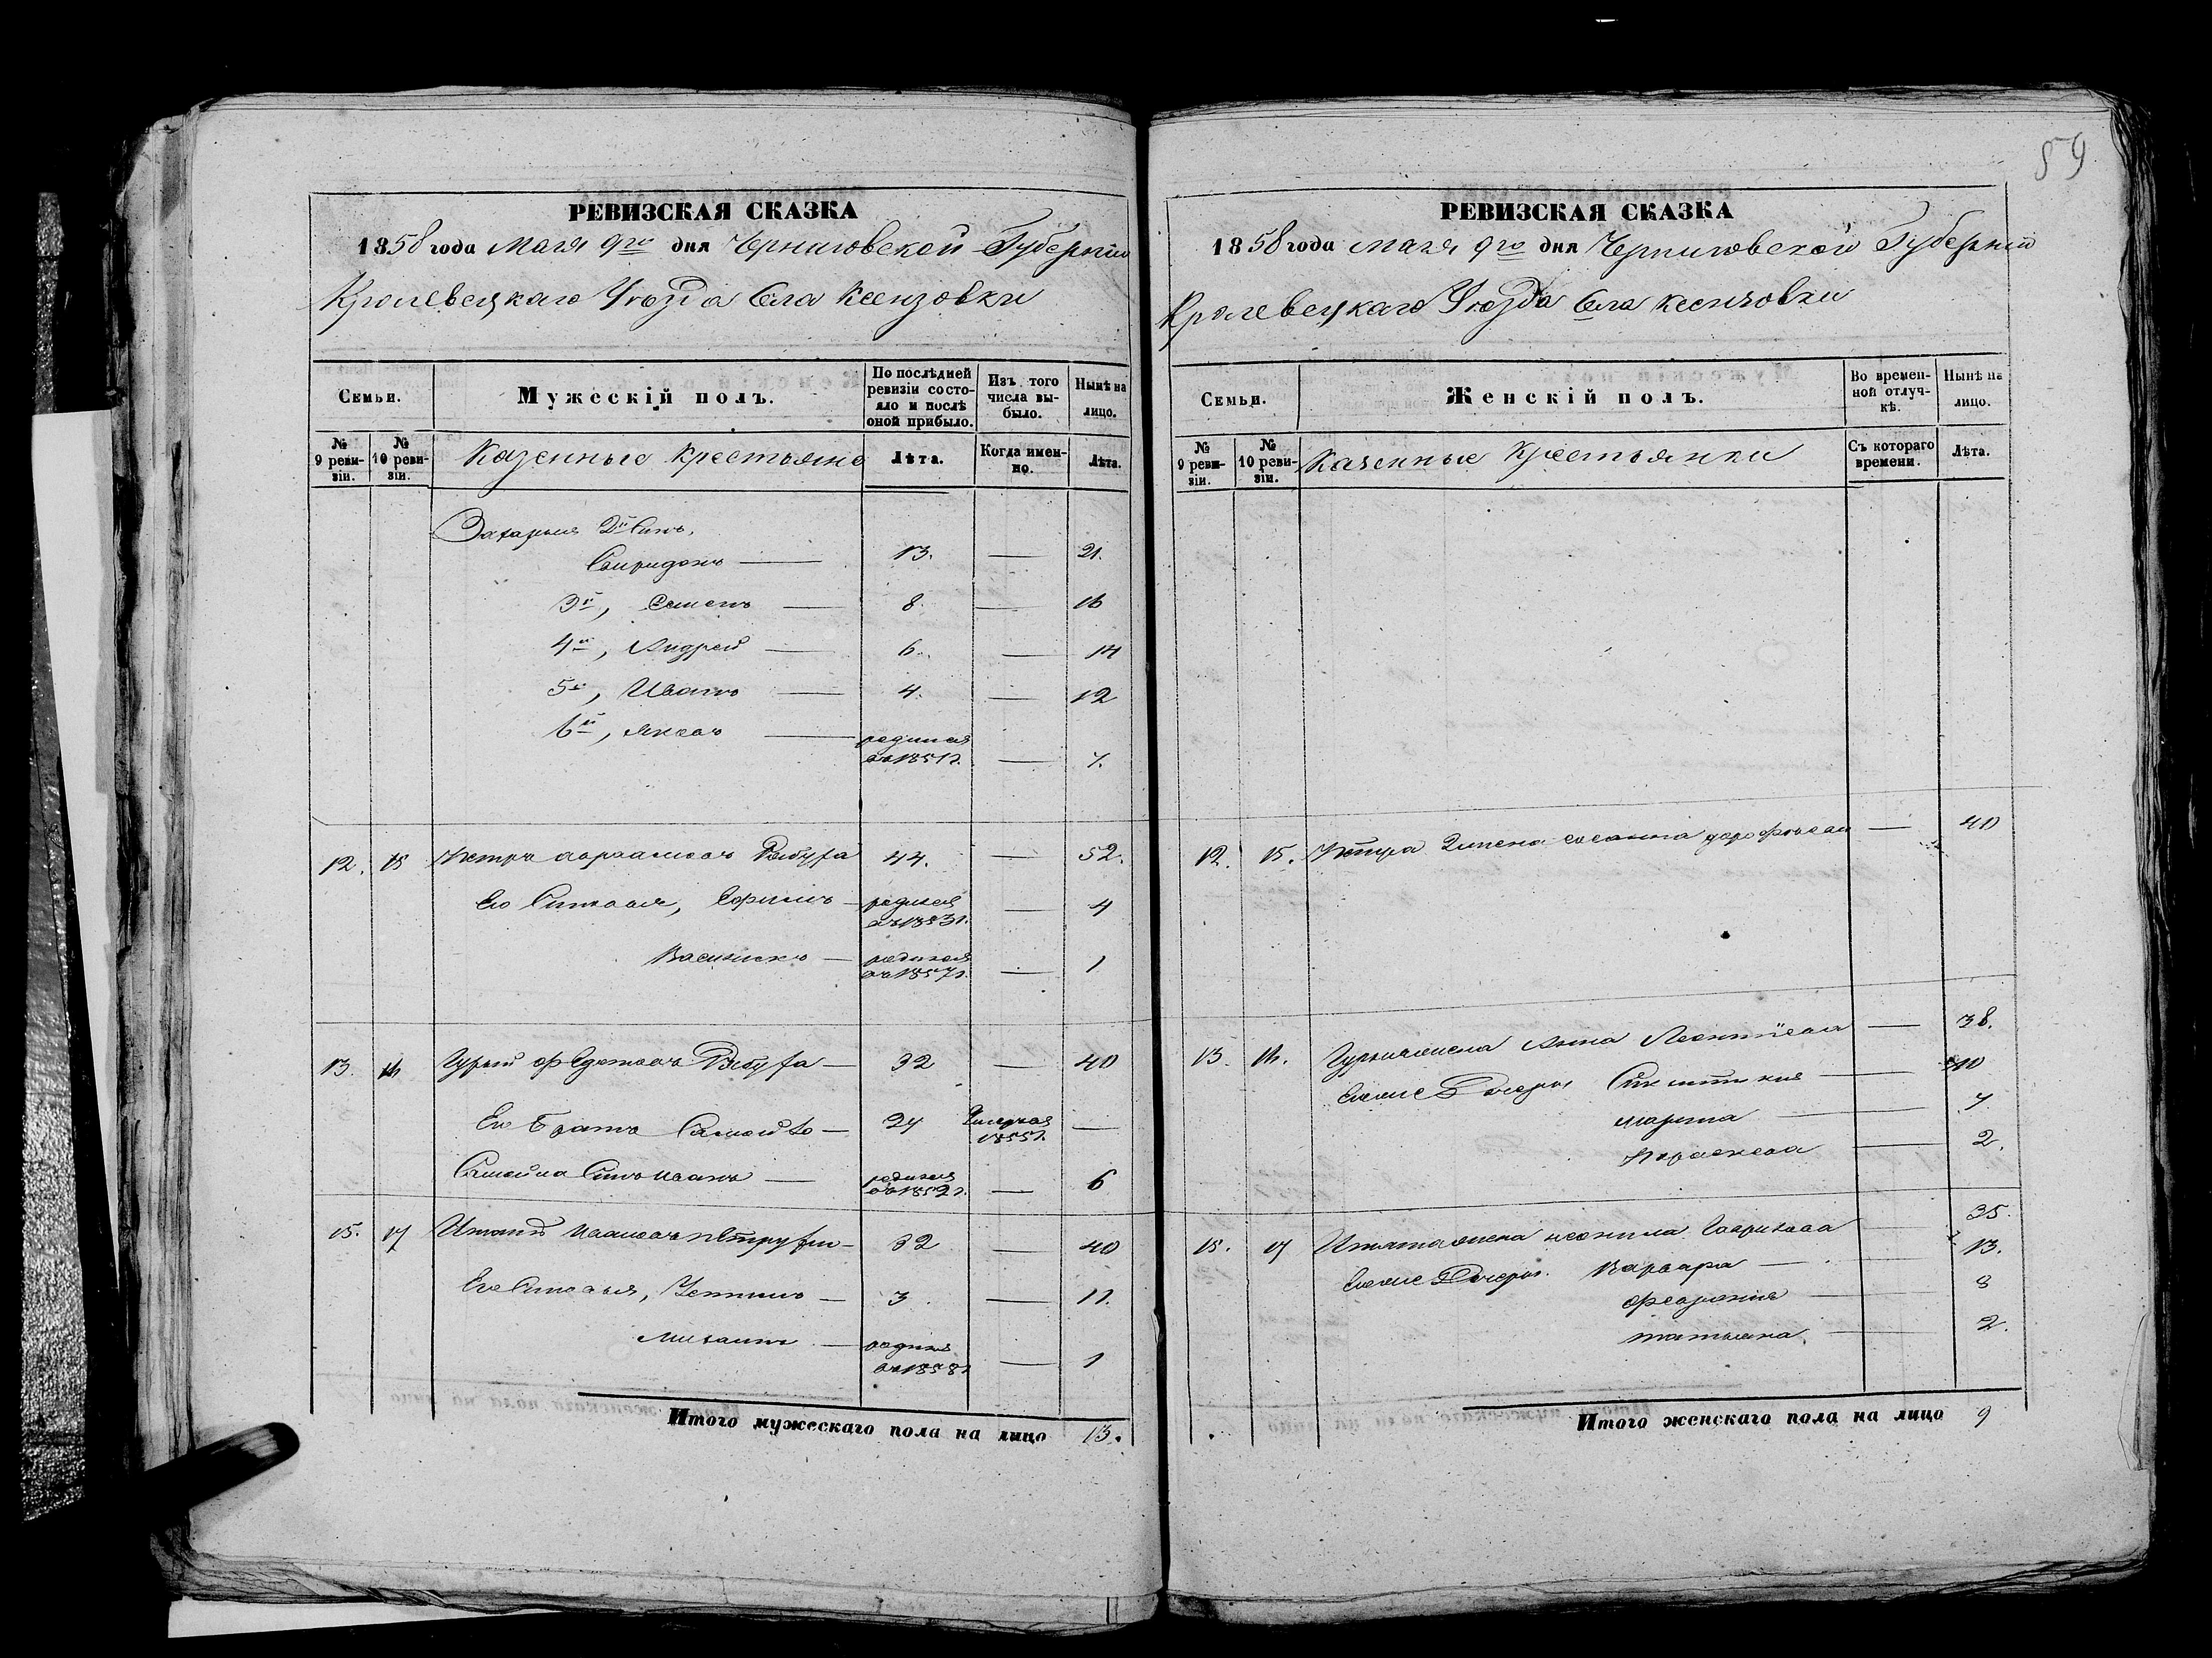 59
РЕВИЗСКАЯ СКАЗКА
1858 года Мая 9го дня Черниговской Губерніи
Кролевецкаго Уѣзда Села Ксензовки
Семьи.
Мужескій полъ.
По послѣдней ревизіи состояло и послѣ оной прибыло.
Изъ того числа выбыло.
Нынѣ на лицо.
№ 9 ревизіи.
№ 10 ревизіи.
Казенные Крестьяне
Лѣта.
Когда именно.
Лѣта.
Захарыя 2й Сынъ,
Спиридонъ — 13. — 21.
3й, Семенъ — 8. — 16
4й, Андрей — 6. — 14
5й, Иванъ — 4. — 12
6й, Яковъ — родился
въ 1851г. — 7.
12. 15 Петръ Авраамовъ 44. — 52.
Его Сыновья, Ефимъ — родился
въ 1853г. — 4
Василій — родился
въ 1857г. — 1
13. 16 Гурій Федотовъ — 32 — 40
Его Братъ Самойло — 24 Умеръ
1855г. —
Самойла Сынъ Иванъ — родился
въ 1852г. — 6
15. 17 Игнатъ Ивановъ — 32 — 40
Его Сыновья, — 3. — 11.
Михаилъ — родился
въ 1858г. — 1
Итого мужескаго пола на лицо 13.
РЕВИЗСКАЯ СКАЗКА
1858 года Мая 9го дня Черниговской Губерніи
Кролевецкаго Уѣзда Села Ксензовки
Семьи.
Женскій полъ.
Во временной отлучкѣ.
Нынѣ на лицо.
№ 9 ревизіи.
№ 10 ревизіи.
Казенные Крестьянки
Съ котораго времени.
Лѣта.
12. 15. Петра Жена Сосанна Дорофѣева — 40
13 16. Гурыя жена Анна Леонтіева — 38.
Дочеры — 10
Марина — 7
Параскева — 2.
15. 17 Игната жена Неонила Гаврилова — 35.
Дочеры. Варвара — 13.
Феодосія — 8
Татьяна — 2.
Итого женскаго пола на лицо 9